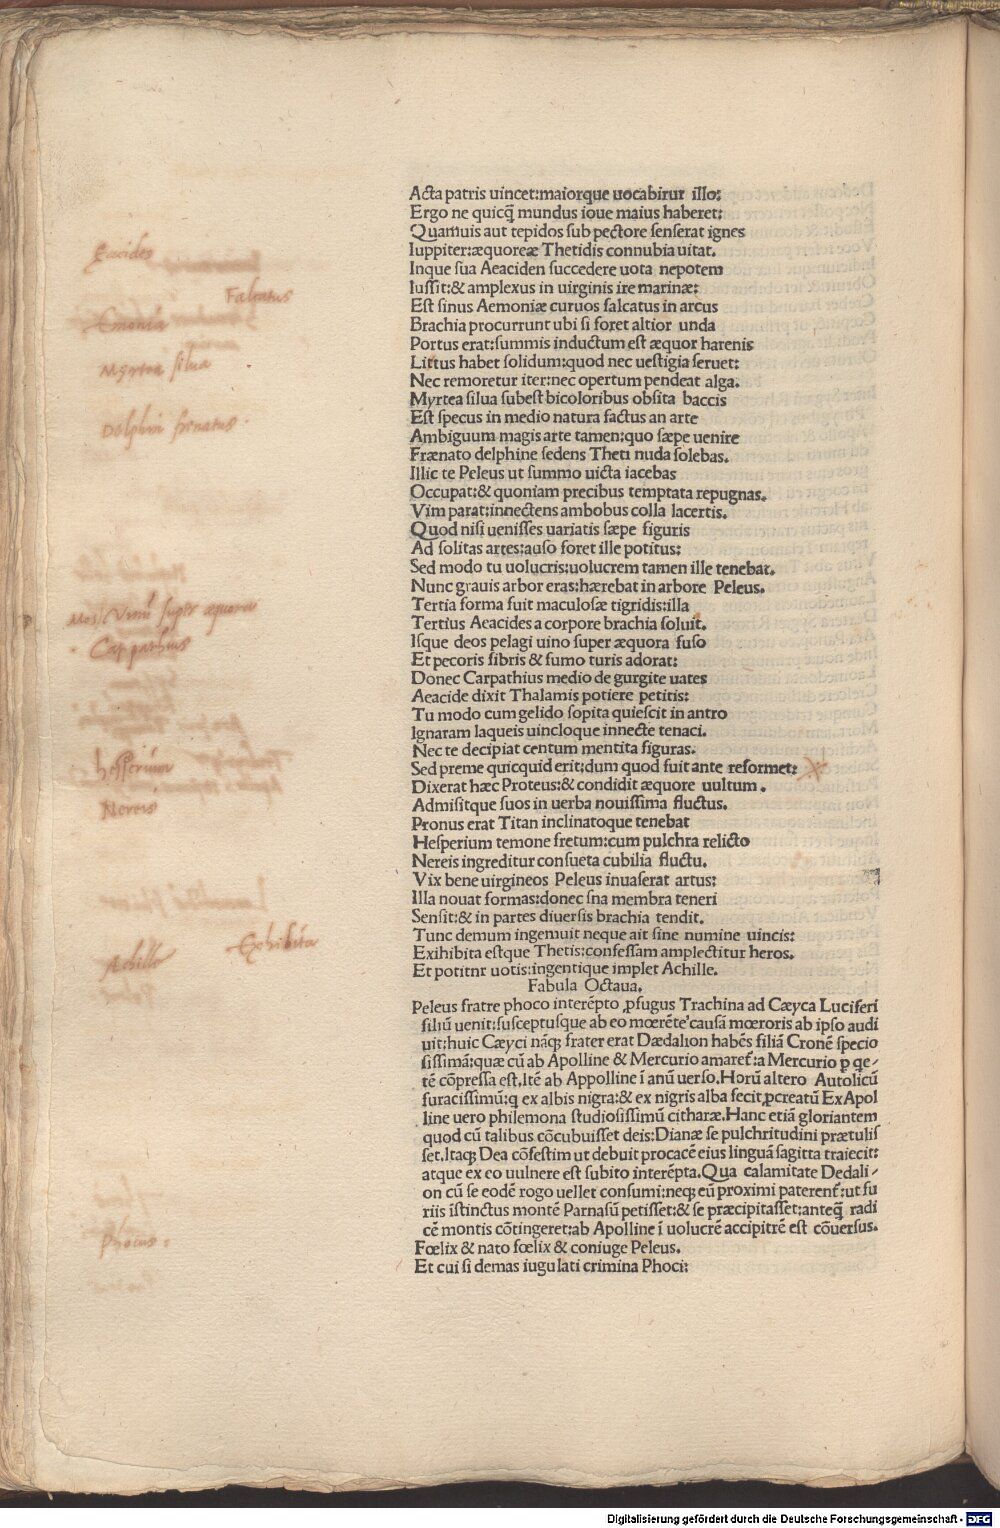 Acta patris uincet:maiorque uocabirur illo:
Ergo ne quicq̃ mundus ioue maius haberet:
Quamuis aut tepidos sub pectore senserat ignes
Iuppiter:æquoreæ Thetidis connubia uitat.
Inque sua Aeaciden succedere uota nepotem
Iussit:& amplexus in uirginis ire marinæ:
Est sinus Aemoniæ curuos falcatus in arcus
Brachia procurrunt ubi si foret altior unda
Portus erat:summis inductum est æquor harenis
Littus habet solidum:quod nec uestigia seruet:
Nec remoretur iter:nec opertum pendeat alga.
Myrtea silua subest bicoloribus obsita baccis
Est specus in medio natura factus an arte
Ambiguum magis arte tamen:quo sæpe uenire
Frænato delphine sedens Theti nuda solebas.
Illic te Peleus ut summo uicta iacebas
Occupat:& quoniam precibus temptata repugnas.
Vim parat:innectens ambobus colla lacertis.
Quod nisi uenisses uariatis sæpe figuris
Ad solitas artes:auso foret ille potitus:
Sed modo tu uolucris:uolucrem tamen ille tenebat.
Nunc grauis arbor eras:hærebat in arbore Peleus.
Tertia forma fuit maculosæ tigridis:illa
Tertius Aeacides a corpore brachia soluit.
Isque deos pelagi uino super æquora fuso
Et pecoris fibris & fumo turis adorat:
Donec Carpathius medio de gurgite uates
Aeacide dixit Thalamis potiere petitis:
Tu modo cum gelido sopita quiescit in antro
Ignaram laqueis uincloque innecte tenaci.
Nec te decipiat centum mentita figuras.
Sed preme quicquid erit:dum quod fuit ante reformet:
Dixerat hæc Proteus:& condidit æquore uultum.
Admisitque suos in uerba nouissima fluctus.
Pronus erat Titan inclinatoque tenebat
Hesperium temone fretum:cum pulchra relicto
Nereis ingreditur consueta cubilia fluctu.
Vix bene uirgineos Peleus inuaserat artus:
Illa nouat formas:donec sna membra teneri
Sensit:& in partes diuersis brachia tendit.
Tunc demum ingemuit neque ait sine numine uincis:
Exihibita estque Thetis:confessam amplectitur heros.
Et potitnr uotis:ingentique implet Achille.
Fabula Octaua.
Peleus fratre phoco interẽpto ꝓfugus Trachina ad Cæyca Luciferi
filiũ uenit:susceptusque ab eo mœrẽte causã mœroris ab ipso audi
uit:huic Cæyci nãq; frater erat Dædalion habẽs filiã Cronẽ specio
sissimã:quæ cũ ab Apolline & Mercurio amaret̃:a Mercurio p qe-
tẽ cõpressa est.Itẽ ab Appolline ĩ anũ uerso.Horũ altero Autolicũ
furacissimũ:q ex albis nigra:& ex nigris alba fecit,ꝓcreatũ Ex Apol
line uero philemona studiosissimũ citharæ.Hanc etiã gloriantem
quod cũ talibus cõcubuisset deis:Dianæ se pulchritudini prætulis
set.Itaq; Dea cõfestim ut debuit procacẽ eius linguã sagitta traiecit:
atque ex eo uulnere est subito interẽpta.Qua calamitate Dedali-
on cũ se eodẽ rogo uellet consumi:neq; eũ proximi paterent̃:ut fu
riis ĩstinctus montẽ Parnasũ petisset:& se præcipitasset:anteq̃ radi
cẽ montis cõtingeret:ab Apolline ĩ uolucrẽ accipitrẽ est cõuersus.
Fœlix & nato fœlix & coniuge Peleus.
Et cui si demas iugulati crimina Phoci:
Falcatus
Emonia
Myrtea silua
Delphin frenatus
Mos Vinũ super equora
Carpathius
hesperium
Nereis
Exhibita
Achille
Phocus
Digitalisierung gefördert durch die Deutsche Forschungsgemeinschaft - DFG